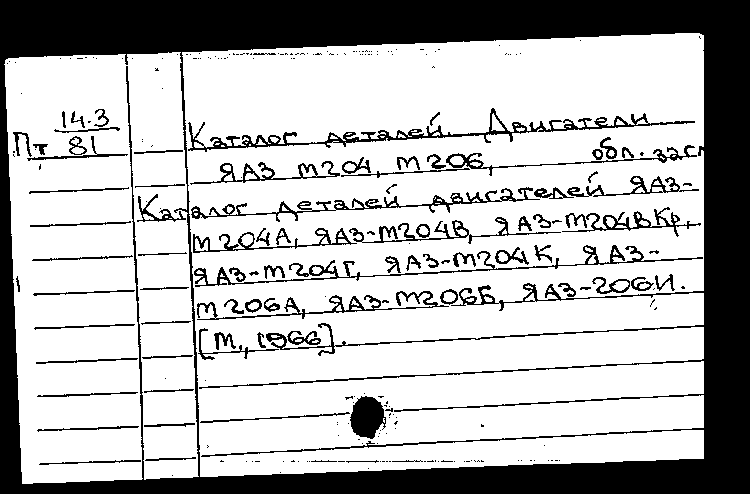 14.3
Пт 81
Каталог деталей. Двигатели
ЯАЗ М204, М206, обл. загл
Каталог деталей двигателей ЯАЗ-
М204А, ЯАЗ-М204В, ЯАЗ-М204ВКр,
ЯАЗ-М204Г, ЯАЗ-М204К, ЯАЗ-
М206А, ЯАЗ-М206Б, ЯАЗ-206И.
[М., 1966].